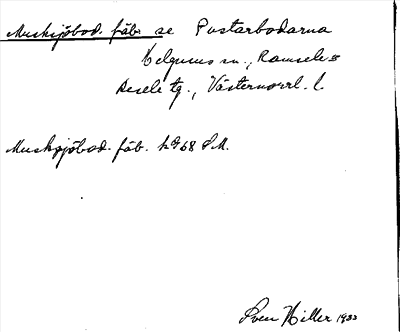 Musksjöbod. fäb. se Postarbodarna
Helgums sn., Ramsele o
Resele tg., Västernorrl. l.
Musksjöbod. fäb. kA 68 S.M.
Sven Hiller 1933